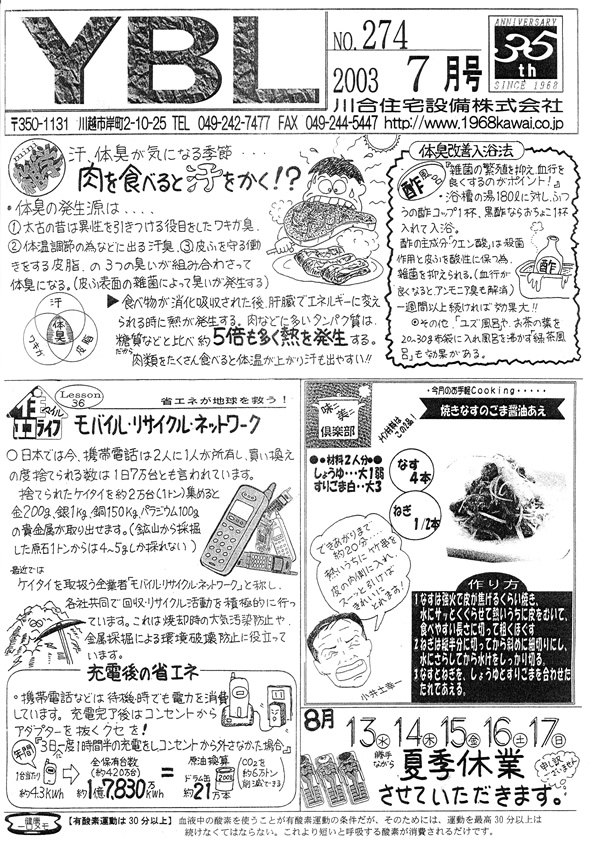 YBL
NO.274
2003 7月号
ANNIVERSARY
35th
SINCE 1968
川合住宅設備株式会社
〒350-1131 川越市岸町2-10-25 TEL 049-242-7477 FAX 049-244-5447 http://www.1968kawai.co.jp
mini
汗、体臭が気になる季節・・・
肉を食べると汗をかく!?
・体臭の発生源は・・・・
①太古の昔は異性を引きつける役目をしたワキガ臭、
②体温調節の為などに出る汗臭、③皮ふを守る働
きをする皮脂、の3つの臭いが組み合わさって
体臭になる。(皮ふ表面の雑菌によって臭いが発生する)
汗
体臭
ワキガ
皮脂
▶食べ物が消化吸収された後、肝臓でエネルギーに変え
られる時に熱が発生する。肉などに多いタンパク質は、
糖質などと比べ約5倍も多く熱を発生する。
だから
肉類をたくさん食べると体温が上がり汗も出やすい!!
体臭改善入浴法
酢風呂
『雑菌の繁殖を抑え、血行を
良くするのがポイント!』
・浴槽の湯180ℓに対し、ふつ
うの酢コップ1杯、黒酢ならおちょこ1杯
入れて入浴。
酢の主成分「クエン酸」は殺菌
作用と皮ふを酸性に保つ為、
雑菌を抑えられる。(血行が
良くなるとアンモニア臭も解消)
一週間以上続ければ効果大!!
酢
◎その他、「ユズ風呂」や、お茶の葉を
20~30g布袋に入れ風呂を沸かす「緑茶風
呂」も効果がある。
スマイルライフ
Lesson 36
省エネが地球を救う!
モバイル・リサイクル・ネットワーク
○日本では今、携帯電話は2人に1人が所有し、買い換え
の度捨てられる数は1日7万台とも言われています。
捨てられたケイタイを約2万台(1トン)集めると
金200g、銀1kg、銅150kg、パラジウム100g
の貴金属が取り出せます。(鉱山から採掘
した原石1トンからは4~5gしか採れない)
最近では
ケイタイを取扱う企業者「モバイル・リサイクル・ネットワーク」と称し、
各社共同で回収・リサイクル活動を積極的に行っ
ています。これは焼却時の大気汚染防止や、
金属採掘による環境破壊防止に役立って
います。
充電後の省エネ
・携帯電話などは待機時でも電力を消費
しています。充電完了後はコンセントから
アダプターを抜くクセを!
年間『3日一度1時間半の充電をしコンセントから外さなかった場合』
1台当たり
約4.3kWh
全保有台数
(約420万台)
約1億7,830万kWh
=
原油換算
ドラム缶
200ℓ
約21万本
(CO2を
約6万トン
削減できる)
・今月のお手軽Cooking・・・・・
焼きなすのごま醤油あえ
味菜倶楽部
●●材料2人分●
しょうゆ…大1弱
すりごま白…大3
なす
4本
ねぎ
1/2本
できあがりまで
約20分…
熱いうちに竹串を
皮の内側に入れ
スーッと引けば
きれいにむけ
とれます!
小井土幸一
作り方
1なすは強火で皮が焦げるくらい焼き、
水にサッとくぐらせて熱いうちに皮をむいて、
食べやすい長さに切って粗くほぐす
2ねぎは縦半分に切ってから斜めに細切りにし、
水にさらしてから水けをしっかり切る。
3なすとねぎを、しょうゆとすりごまを合わせた
たれであえる。
8月13水14木15金16土17日
勝手ながら
夏季休業
申し訳ございません
させていただきます。
健康一口メモ
【有酸素運動は30分以上】 血液中の酸素を使うことが有酸素運動の条件だが、そのためには、運動を最高30分以上は
続けなくてはならない。これより短いと呼吸する酸素が消費されるだけです。